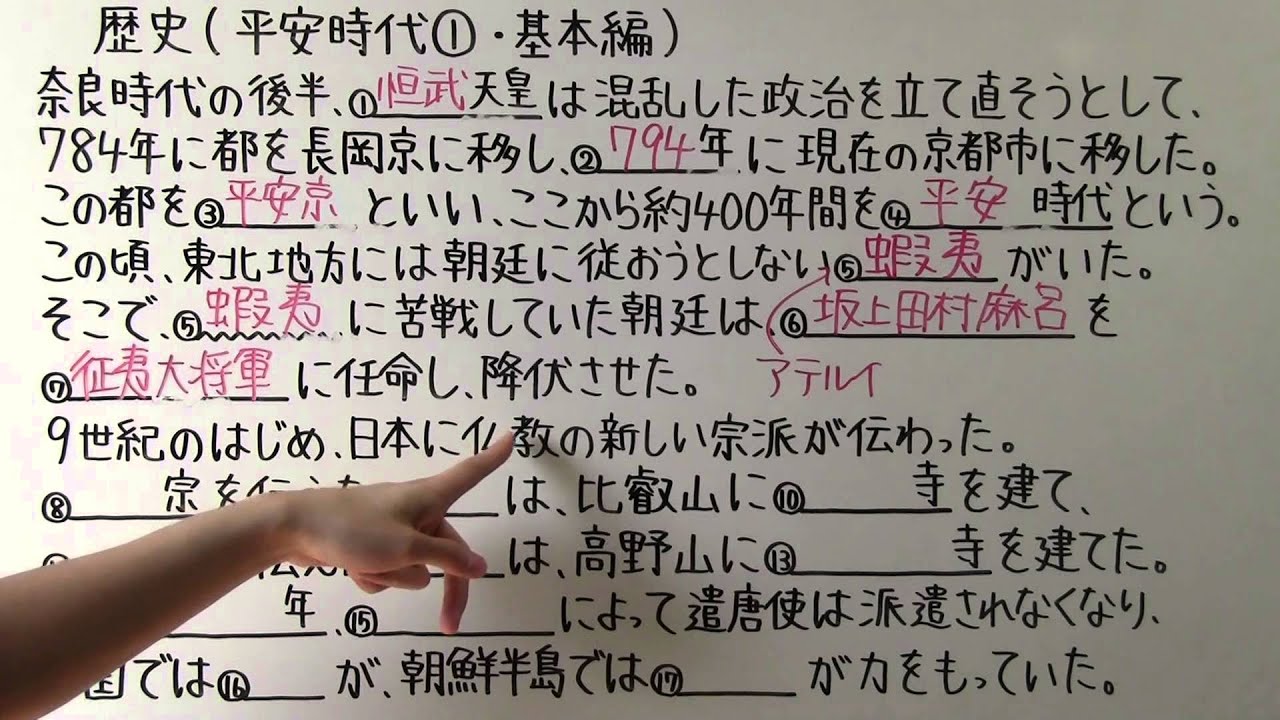 歴史(平安時代①・基本編)
奈良時代の後半、①恒武天皇は混乱した政治を立て直そうとして、
784年に都を長岡京に移し、②794年に現在の京都市に移した。
この都を③平安京といい、ここから約400年間を④平安時代という。
この頃、東北地方には朝廷に従おうとしない⑤蝦夷がいた。
そこで、⑤蝦夷に苦戦していた朝廷は、⑥坂上田村麻呂を
⑦征夷大将軍に任命し、降伏させた。 アテルイ
9世紀のはじめ、日本に仏教の新しい宗派が伝わった。
⑧ 宗を は、比叡山に⑩ 寺を建て、
は、高野山に⑬ 寺を建てた。
年、⑮ によって遣唐使は派遣されなくなり、
国では⑯ が、朝鮮半島では⑰ が力をもっていた。